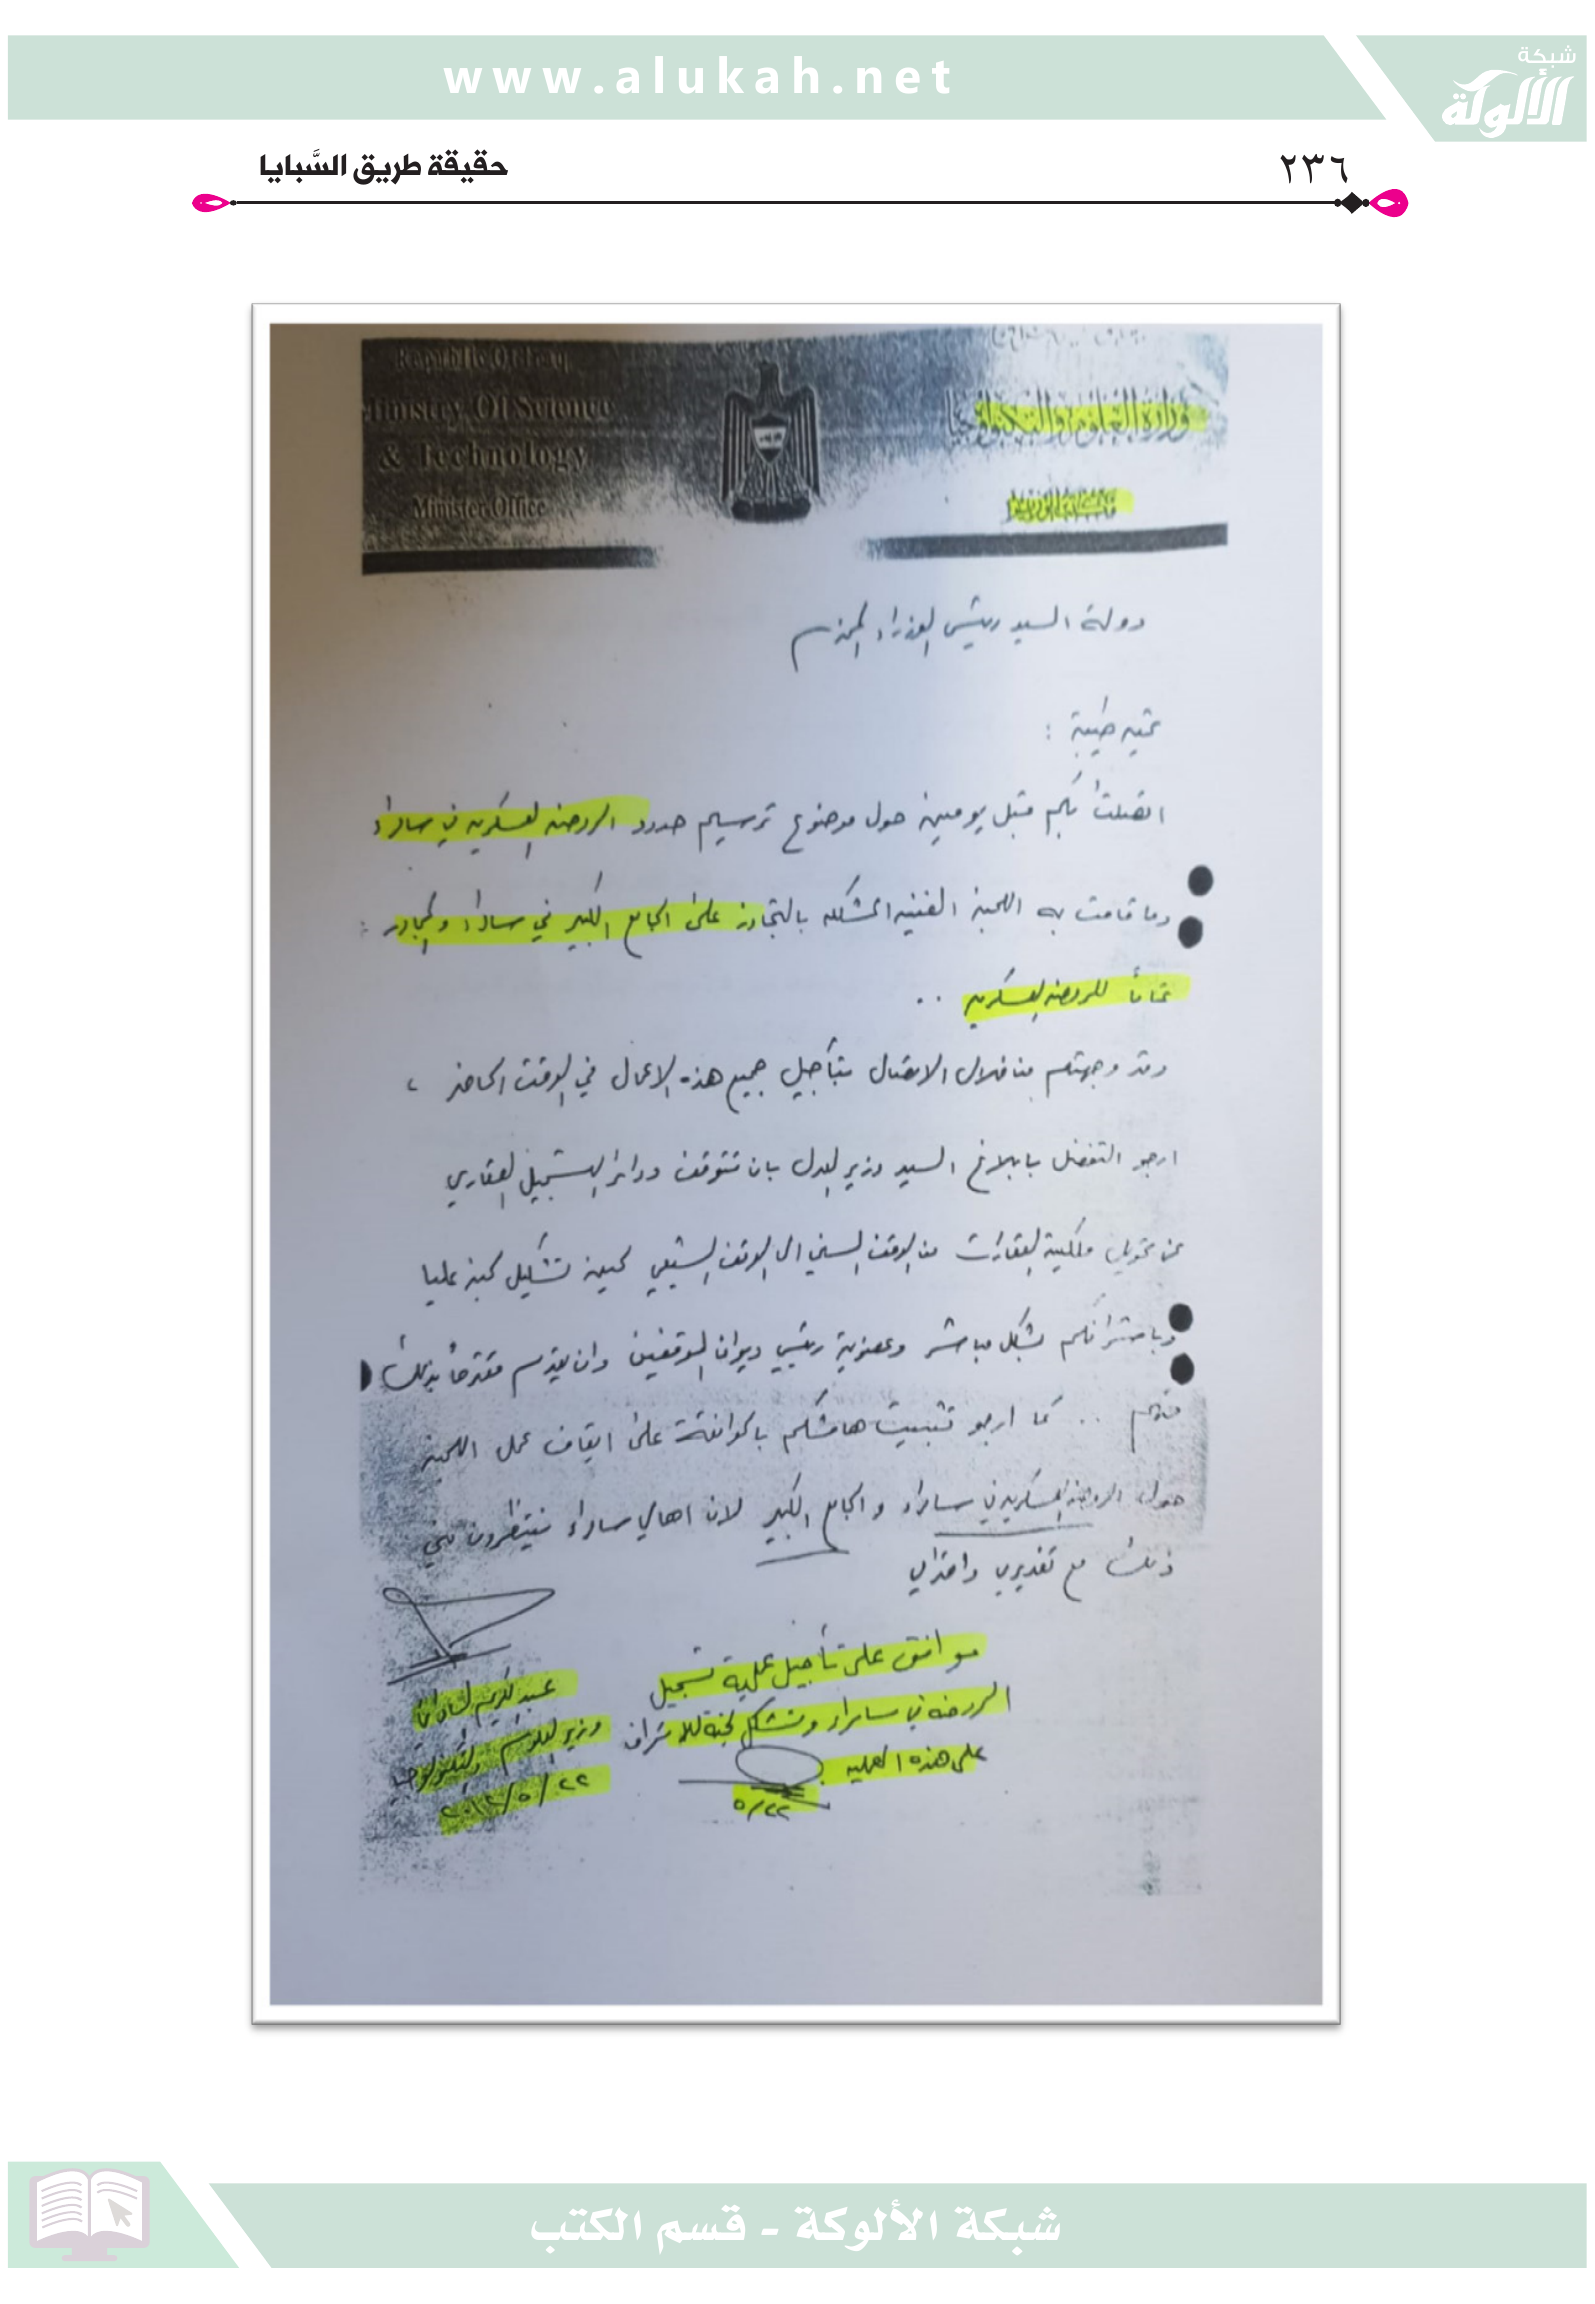 www.alukah.net
شبكة
الألوكة
٢٣٦
حقيقة طريق السَّبايا
Republic Of Iraq
Ministry Of Science
& Technology
Minister Office
وزارة العلوم والتكنولوجيا
مكتب الوزير
دولة السيد رئيس الوزراء المحترم
تحية طيبة :
اتصلت بكم قبل يومين حول موضوع ترسيم حدود الروضة العسكرية في سامراء
وما قامت به اللجنة الفنية المشكلة بالتجاوز على الجامع الكبير في سامراء والمجاور :
تماماً للروضة العسكرية ..
وقد وجهتم من خلال الاتصال بتأجيل جميع هذه الاعمال في الوقت الحاضر ،
ارجو التفضل بابلاغ السيد وزير العدل بان تتوقف دوائر التسجيل العقاري
عن تحويل ملكية العقارات من الوقف السني الى الوقف الشيعي لحين تشكيل لجنة عليا
وباشرافكم بشكل مباشر وعضوية رئيسي ديوان الوقفين وان يقدم مقترحاً بذلك
.. كما ارجو تثبيت هامشكم بالموافقة على ايقاف عمل اللجنة
حول الروضة العسكرية في سامراء والجامع الكبير لان اهالي سامراء ينتظرون مني
ذلك مع تقديري واحترامي
موافق على تأجيل عملية تسجيل
الروضة في سامراء وتشكل لجنة للاشراف
على هذه العملية
٥/٢٢
عبد الكريم السامرائي
وزير العلوم والتكنولوجيا
٢٠١٢/٥/٢٢
شبكة الألوكة - قسم الكتب